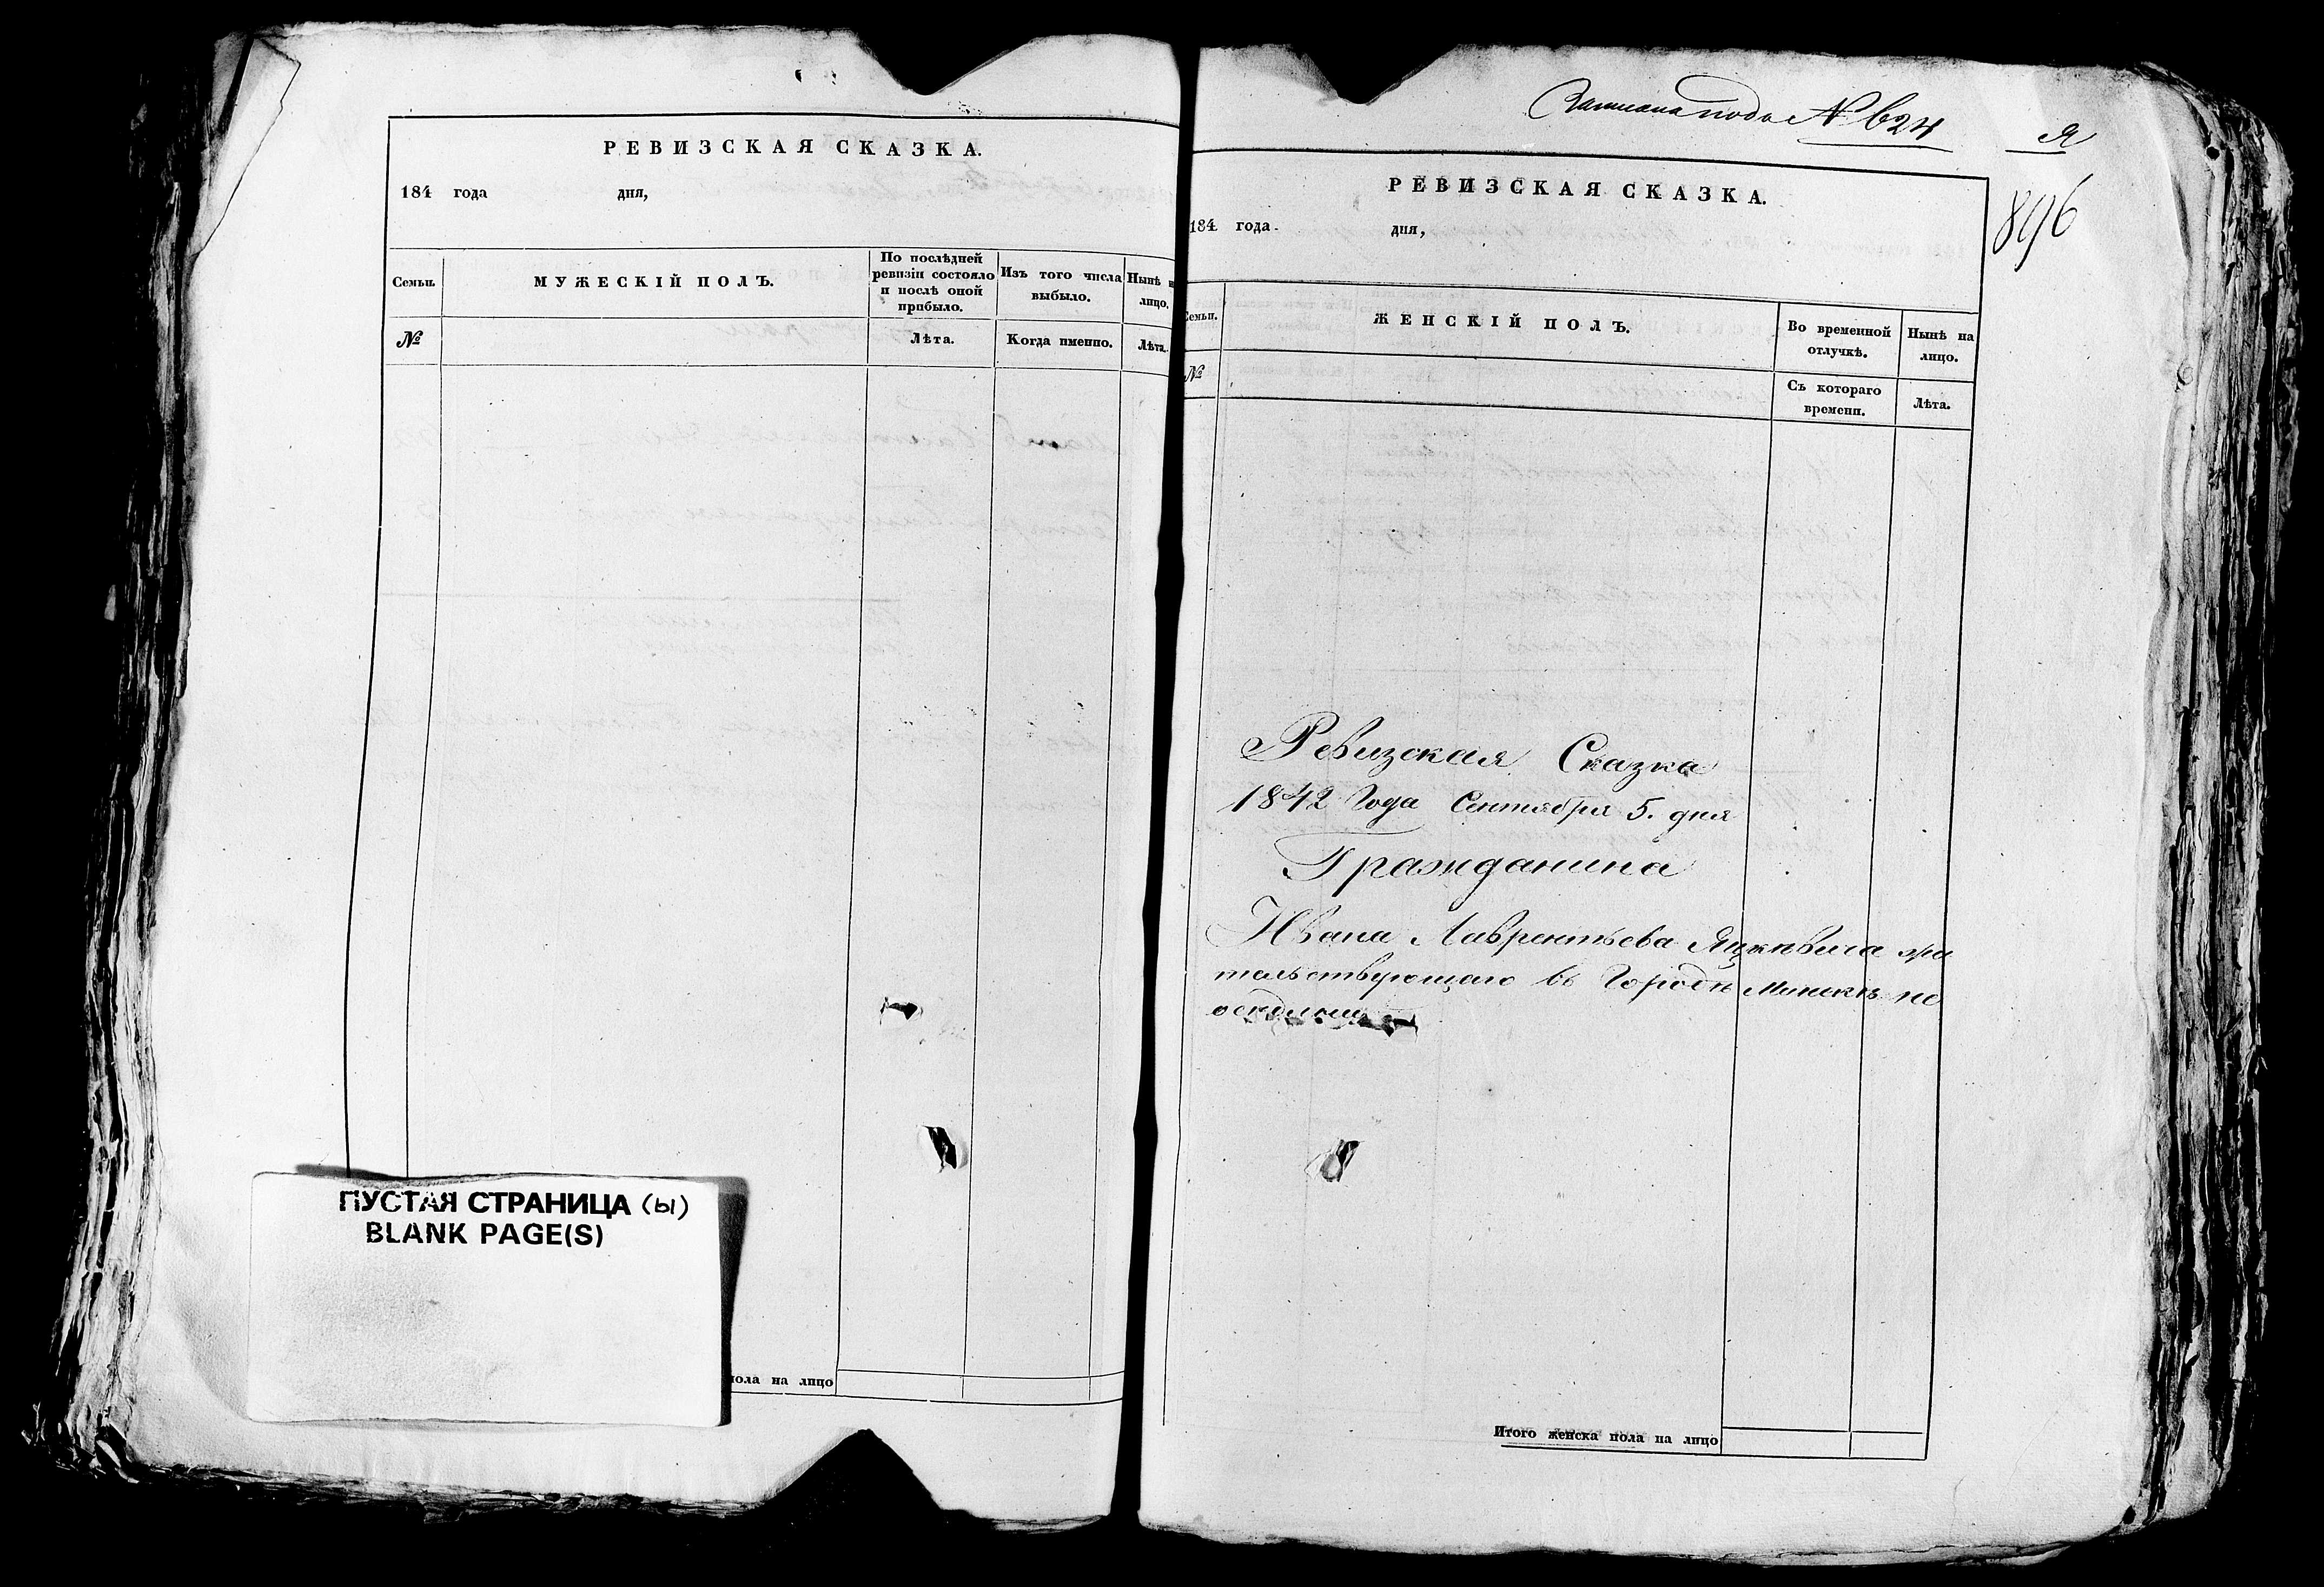 РЕВИЗСКАЯ СКАЗКА.
184 года дня,
Семьи.
МУЖЕСКІЙ ПОЛЪ.
По послѣдней
ревизіи состояло
и послѣ оной
прибыло.
Изъ того числа
выбыло.
Нынѣ н
лицо.
№
Лѣта.
Когда именно.
Лѣта.
ПУСТАЯ СТРАНИЦА (ы)
BLANK PAGE(S)
пола на лицо
Записана подъ № 624
Я
896
РЕВИЗСКАЯ СКАЗКА.
184 года дня,
Семьи.
ЖЕНСКІЙ ПОЛЪ.
Во временной
отлучкѣ.
Нынѣ на
лицо.
№
Съ котораго
времени.
Лѣта.
Ревизская Сказка
1842 Года Сентября 5. дня
Гражданина
Ивана Лаврентьева Яцкевича жи
тельствующаго въ Городѣ Минскѣ не
оседлый
Итого женска пола на лицо